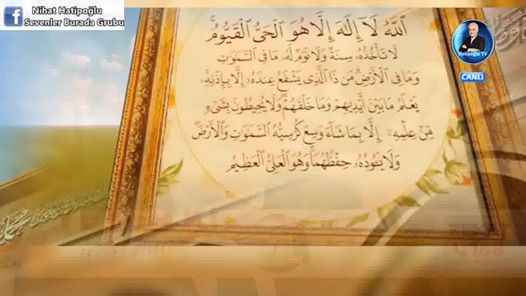 Nihat Hatipoğlu
Sevenler Burada Grubu
Hatipoğlu TV
CANLI
اَللّٰهُ لَا اِلٰهَ اِلَّا هُوَ الْحَيُّ الْقَيُّومُ
لَا تَأْخُذُهُ سِنَةٌ وَلَا نَوْمٌ لَهُ مَا فِي السَّمٰوَاتِ
وَمَا فِي الْاَرْضِ مَنْ ذَا الَّذِي يَشْفَعُ عِنْدَهُ اِلَّا بِاِذْنِهِ
يَعْلَمُ مَا بَيْنَ اَيْدِيهِمْ وَمَا خَلْفَهُمْ وَلَا يُحِيطُونَ بِشَيْءٍ
مِنْ عِلْمِهِ اِلَّا بِمَا شَاءَ وَسِعَ كُرْسِيُّهُ السَّمٰوَاتِ وَالْاَرْضَ
وَلَا يَئُودُهُ حِفْظُهُمَا وَهُوَ الْعَلِيُّ الْعَظِيمُ